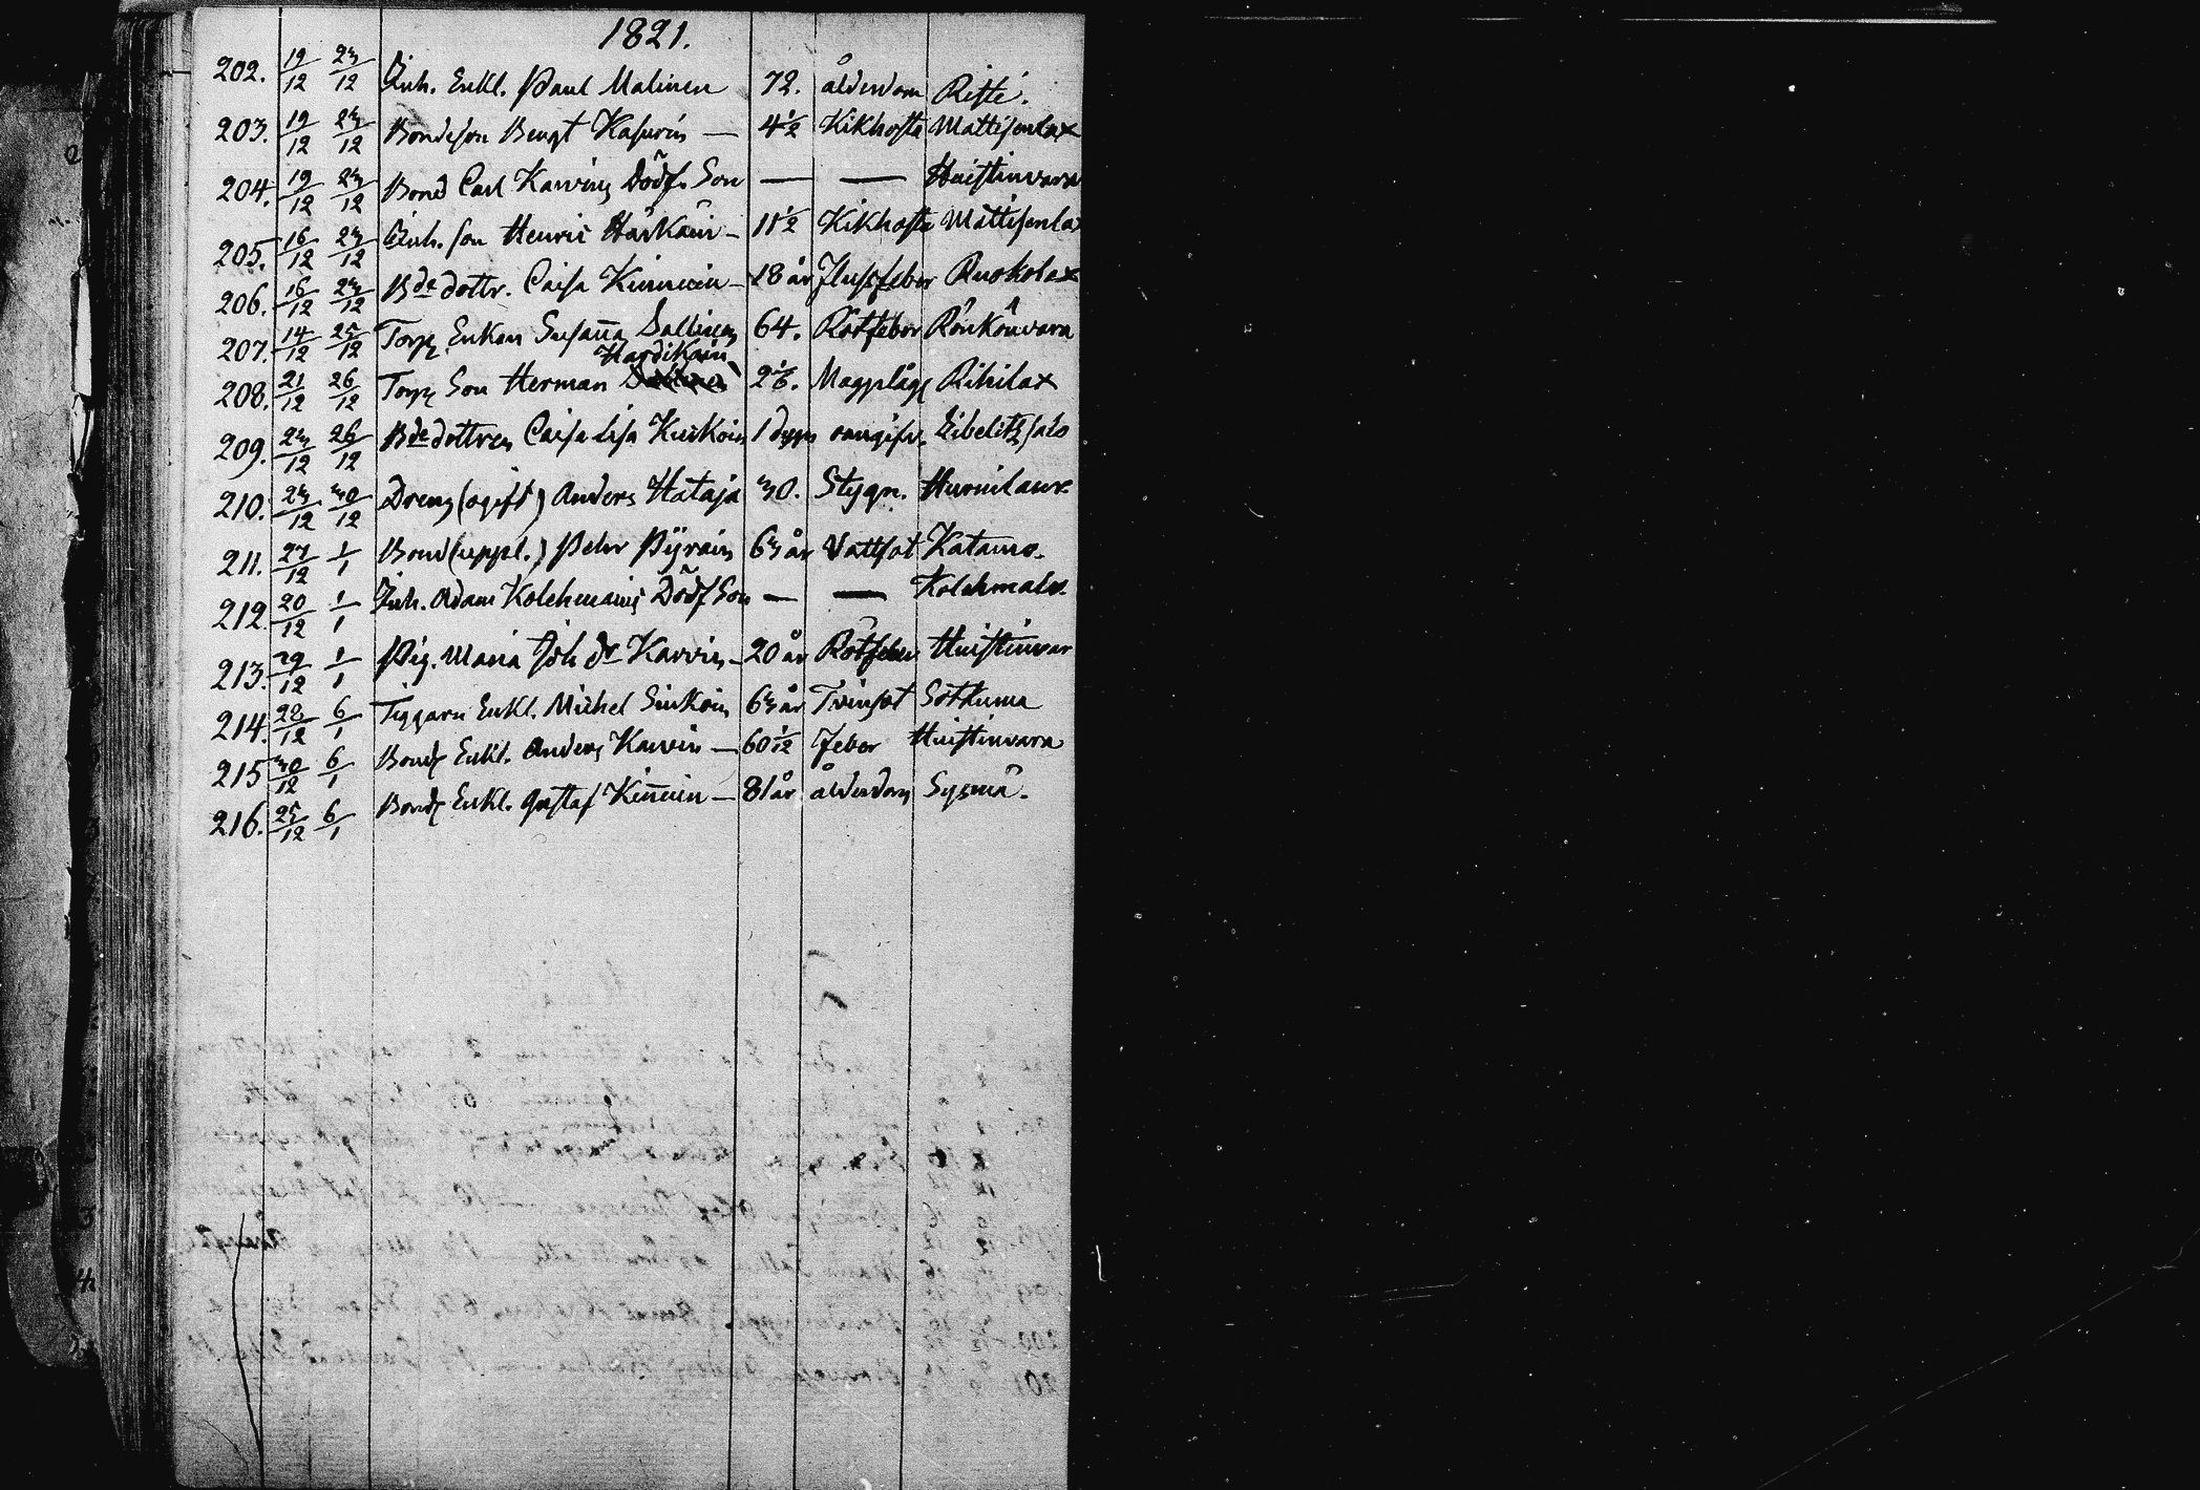 1821.
202. 19/12 23/12 Inh. Enkl. Paul Malinen 72. ålderdom Riste.
203. 19/12 23/12 Bondeson Bengt Kasurin — 4 1/2 Kikhosta Mattisenlax
204. 19/12 23/12 Bond Carl Karvins Dödf. Son — — Huistinvara
205. 16/12 23/12 Inh. son Henric Härkäin — 11 1/2 Kikhosta Mattisenla
206. 16/12 23/12 Bde dottr. Caisa Kinnuin — 18 år Flussfeber Ruokolax
207. 14/12 25/12 Torp. Enkan Susana Sallinen 64. Rötfeber Rönkönvara
Hardikain
208. 21/12 26/12 Torp Son Herman 2 1/6. Magplåg Rihilax
209. 23/12 26/12 Bde dottren Caisa Lisa Kuikoin 1 dygn oangifv. Libelitssalo
210. 23/12 30/12 Dreng (ogift) Anders Hataja 30. Stygn. Hurnilanx
211. 27/12 1/1 Bond (uppl.) Pehr Pyräin 63 år Vattsot Katamo.
212. 20/12 1/1 Inh. Adam Kolehmains Dödf Son — — Kolehmalax.
213. 29/12 1/1 Pig. Maria Joh dr Karvin — 20 år Rötfeber Huistinvar
214. 28/12 6/1 Tiggaren Enkl. Michel Sinkoin 63 år Tvinsot Sotkuma
215 30/12 6/1 Bond Enkl. Anders Karvin — 60 1/12 Feber Huistinvara
216. 25/12 6/1 Bond Enkl. Gustaf Kinnuin — 81 år ålderdom Sysmä.